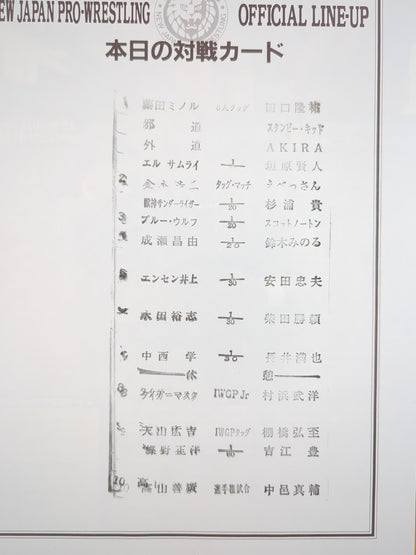 NEW JAPAN PRO-WRESTLING OFFICIAL LINE-UP
本日の対戦カード
藤田ミノル 6人タッグ 田口隆祐
邪道 スタンピー・キッド
外道 AKIRA
エル サムライ 1 垣原賢人
2 金本浩二 タッグ・マッチ えべっさん
獣神サンダーライガー 1/20 杉浦貴
3 ブルー・ウルフ 1/20 スコットノートン
成瀬昌由 1/20 鈴木みのる
エンセン井上 1/30 安田忠夫
永田裕志 1/30 柴田勝頼
中西学 1/30 長井満也
休憩
8 タイガーマスク IWGP Jr 村浜武洋
天山広吉 IWGPタッグ 棚橋弘至
蝶野正洋 1/60 吉江豊
10 高山善廣 選手権試合 中邑真輔